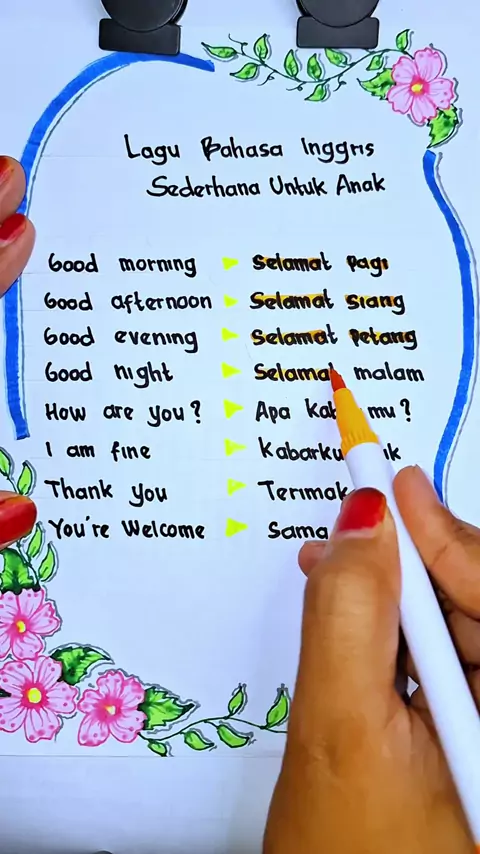 Lagu Bahasa Inggris
Sederhana Untuk Anak
Good morning ▶ Selamat Pagi
Good afternoon ▶ Selamat Siang
Good evening ▶ Selamat Petang
Good night ▶ Selamat malam
How are you? ▶ Apa mu?
I am fine ▶ Kabarku
Thank you ▶
You're Welcome ▶ Sama